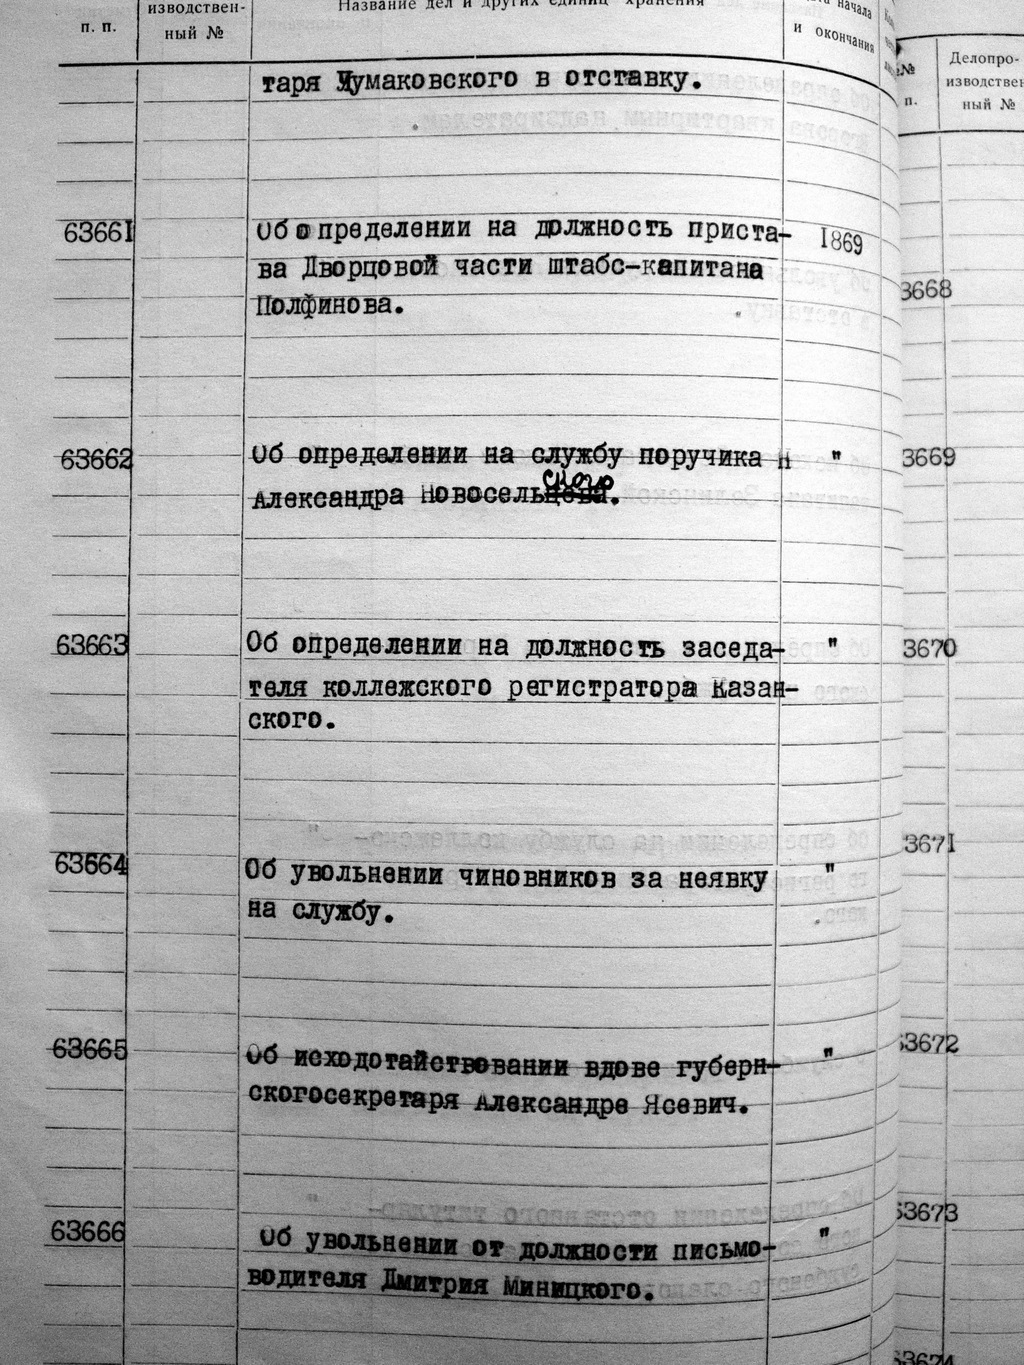 п. п.
изводствен-
ный №
Название дел и других единиц хранения
начала
и окончания
таря Чумаковского в отставку.
63661
Об определении на должность приста-
ва Дворцовой части штабс-капитана
Полфинова.
1869
63662
Об определении на службу поручика
Александра Новосельцева.
ского
"
63663
Об определении на должность заседа-
теля коллежского регистратора Казан-
ского.
"
63664
Об увольнении чиновников за неявку
на службу.
"
63665
Об исходотайствовании вдове губерн-
скогосекретаря Александре Ясевич.
"
63666
Об увольнении от должности письмо-
водителя Дмитрия Миницкого.
"
№
п.
Делопро-
изводствен
ный №
3668
3669
3670
3671
63672
63673
63674